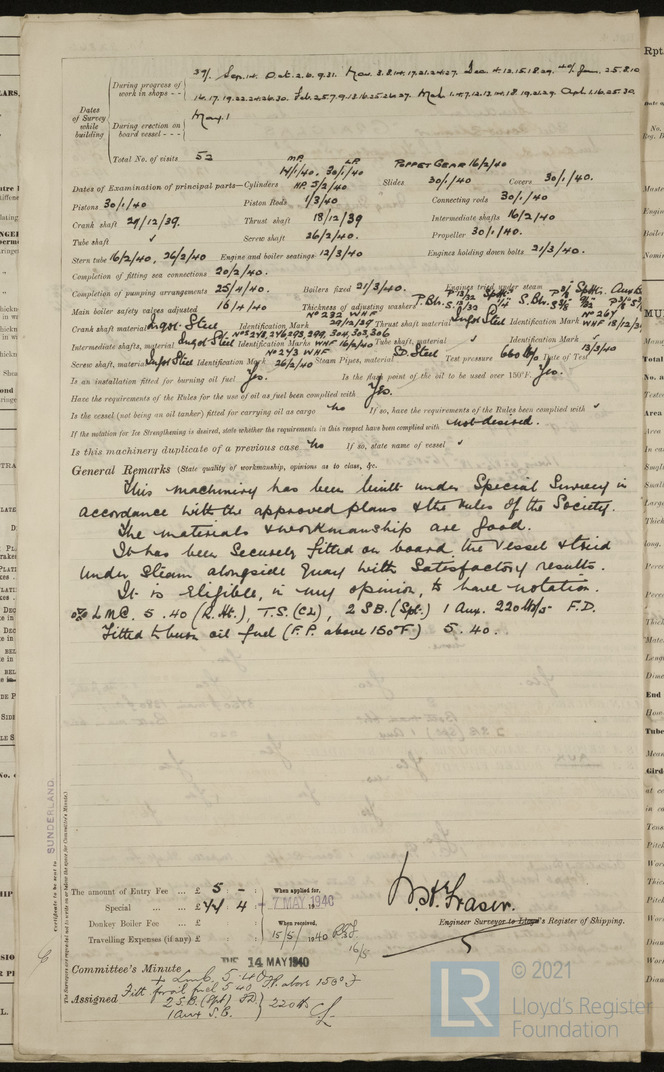 39/. Sep. 14. Oct. 2. 6. 9. 31. Nov. 3. 8. 14. 17. 21. 24. 27. Dec 4. 12. 15. 18. 29. 40/. Jan. 2. 5. 8. 10
During progress of work in shops - -
16. 17. 19. 22. 24. 26. 30. Feb. 2. 5. 7. 9. 13. 16. 25. 26. 27. Mch 1. 4. 7. 12. 13. 14. 18. 19. 21. 29. Apl 1. 16. 25. 30.
Dates of Survey while building
During erection on board vessel - - -
May. 1
Total No. of visits 52
Dates of Examination of principal parts—Cylinders M.P. 14/1/40. L.P. 30/1/40 H.P. 5/2/40 Slides 30/1/40 Covers 30/1/40. POPPET GEAR 16/2/40
Pistons 30/1/40 Piston Rods 1/3/40 Connecting rods 30/1/40
Crank shaft 29/12/39. Thrust shaft 18/12/39 Intermediate shafts 16/2/40
Tube shaft ✓ Screw shaft 26/2/40. Propeller 30/1/40.
Stern tube 16/2/40, 26/2/40 Engine and boiler seatings 12/3/40 Engines holding down bolts 21/3/40.
Completion of fitting sea connections 20/2/40.
Completion of pumping arrangements 25/4/40. Boilers fixed 21/3/40. Engines tried under steam
Main boiler safety valves adjusted 16/4/40 Thickness of adjusting washers
Crank shaft material Ingot Steel Identification Mark No 232 WHF 29/12/39 Thrust shaft material Ingot Steel Identification Mark No 267 WHF 18/12/39
Intermediate shafts, material Ingot Steel Identification Marks WHF 16/2/40 Tube shaft, material ✓ Identification Mark ✓
Screw shaft, material Ingot Steel Identification Mark No 273 WHF 26/2/40 Steam Pipes, material SD. Steel Test pressure 660 lb Date of Test 13/3/40
Is an installation fitted for burning oil fuel Yes. Is the flash point of the oil to be used over 150°F. Yes.
Have the requirements of the Rules for the use of oil as fuel been complied with Yes.
Is the vessel (not being an oil tanker) fitted for carrying oil as cargo No If so, have the requirements of the Rules been complied with ✓
If the notation for Ice Strengthening is desired, state whether the requirements in this respect have been complied with not desired.
Is this machinery duplicate of a previous case No If so, state name of vessel ✓
General Remarks (State quality of workmanship, opinions as to class, &c.
This machinery has been built under Special Survey in
accordance with the approved plans & the rules of the Society.
The materials & workmanship are good.
It has been securely fitted on board the vessel & tried
under steam alongside quay with satisfactory results.
It is eligible, in my opinion, to have notation.
L.M.C. 5.40 (R.Ht.), T.S. (CL), 2 S.B. (Spt.) 1 Aux. 220 lbs F.D.
Fitted to burn oil fuel (F.P. above 150°F) 5.40.
SUNDERLAND
The amount of Entry Fee ... £ 5 : - : When applied for,
Special ... £ 44 : 4 - 7 MAY 1940
Donkey Boiler Fee ... £ : : When received,
Travelling Expenses (if any) £ : : 15/5/1940 16/5
W.H. Fraser.
Engineer Surveyor to Lloyd's Register of Shipping.
Committee's Minute TUE 14 MAY 1940
Assigned + LMC. 5.40
Fitt for oil fuel 5.40 F.P. above 150° F
2 S.B. (Spt) F.D. } 220 lb
1 Aux S.B.
LR © 2021
Lloyd's Register
Foundation